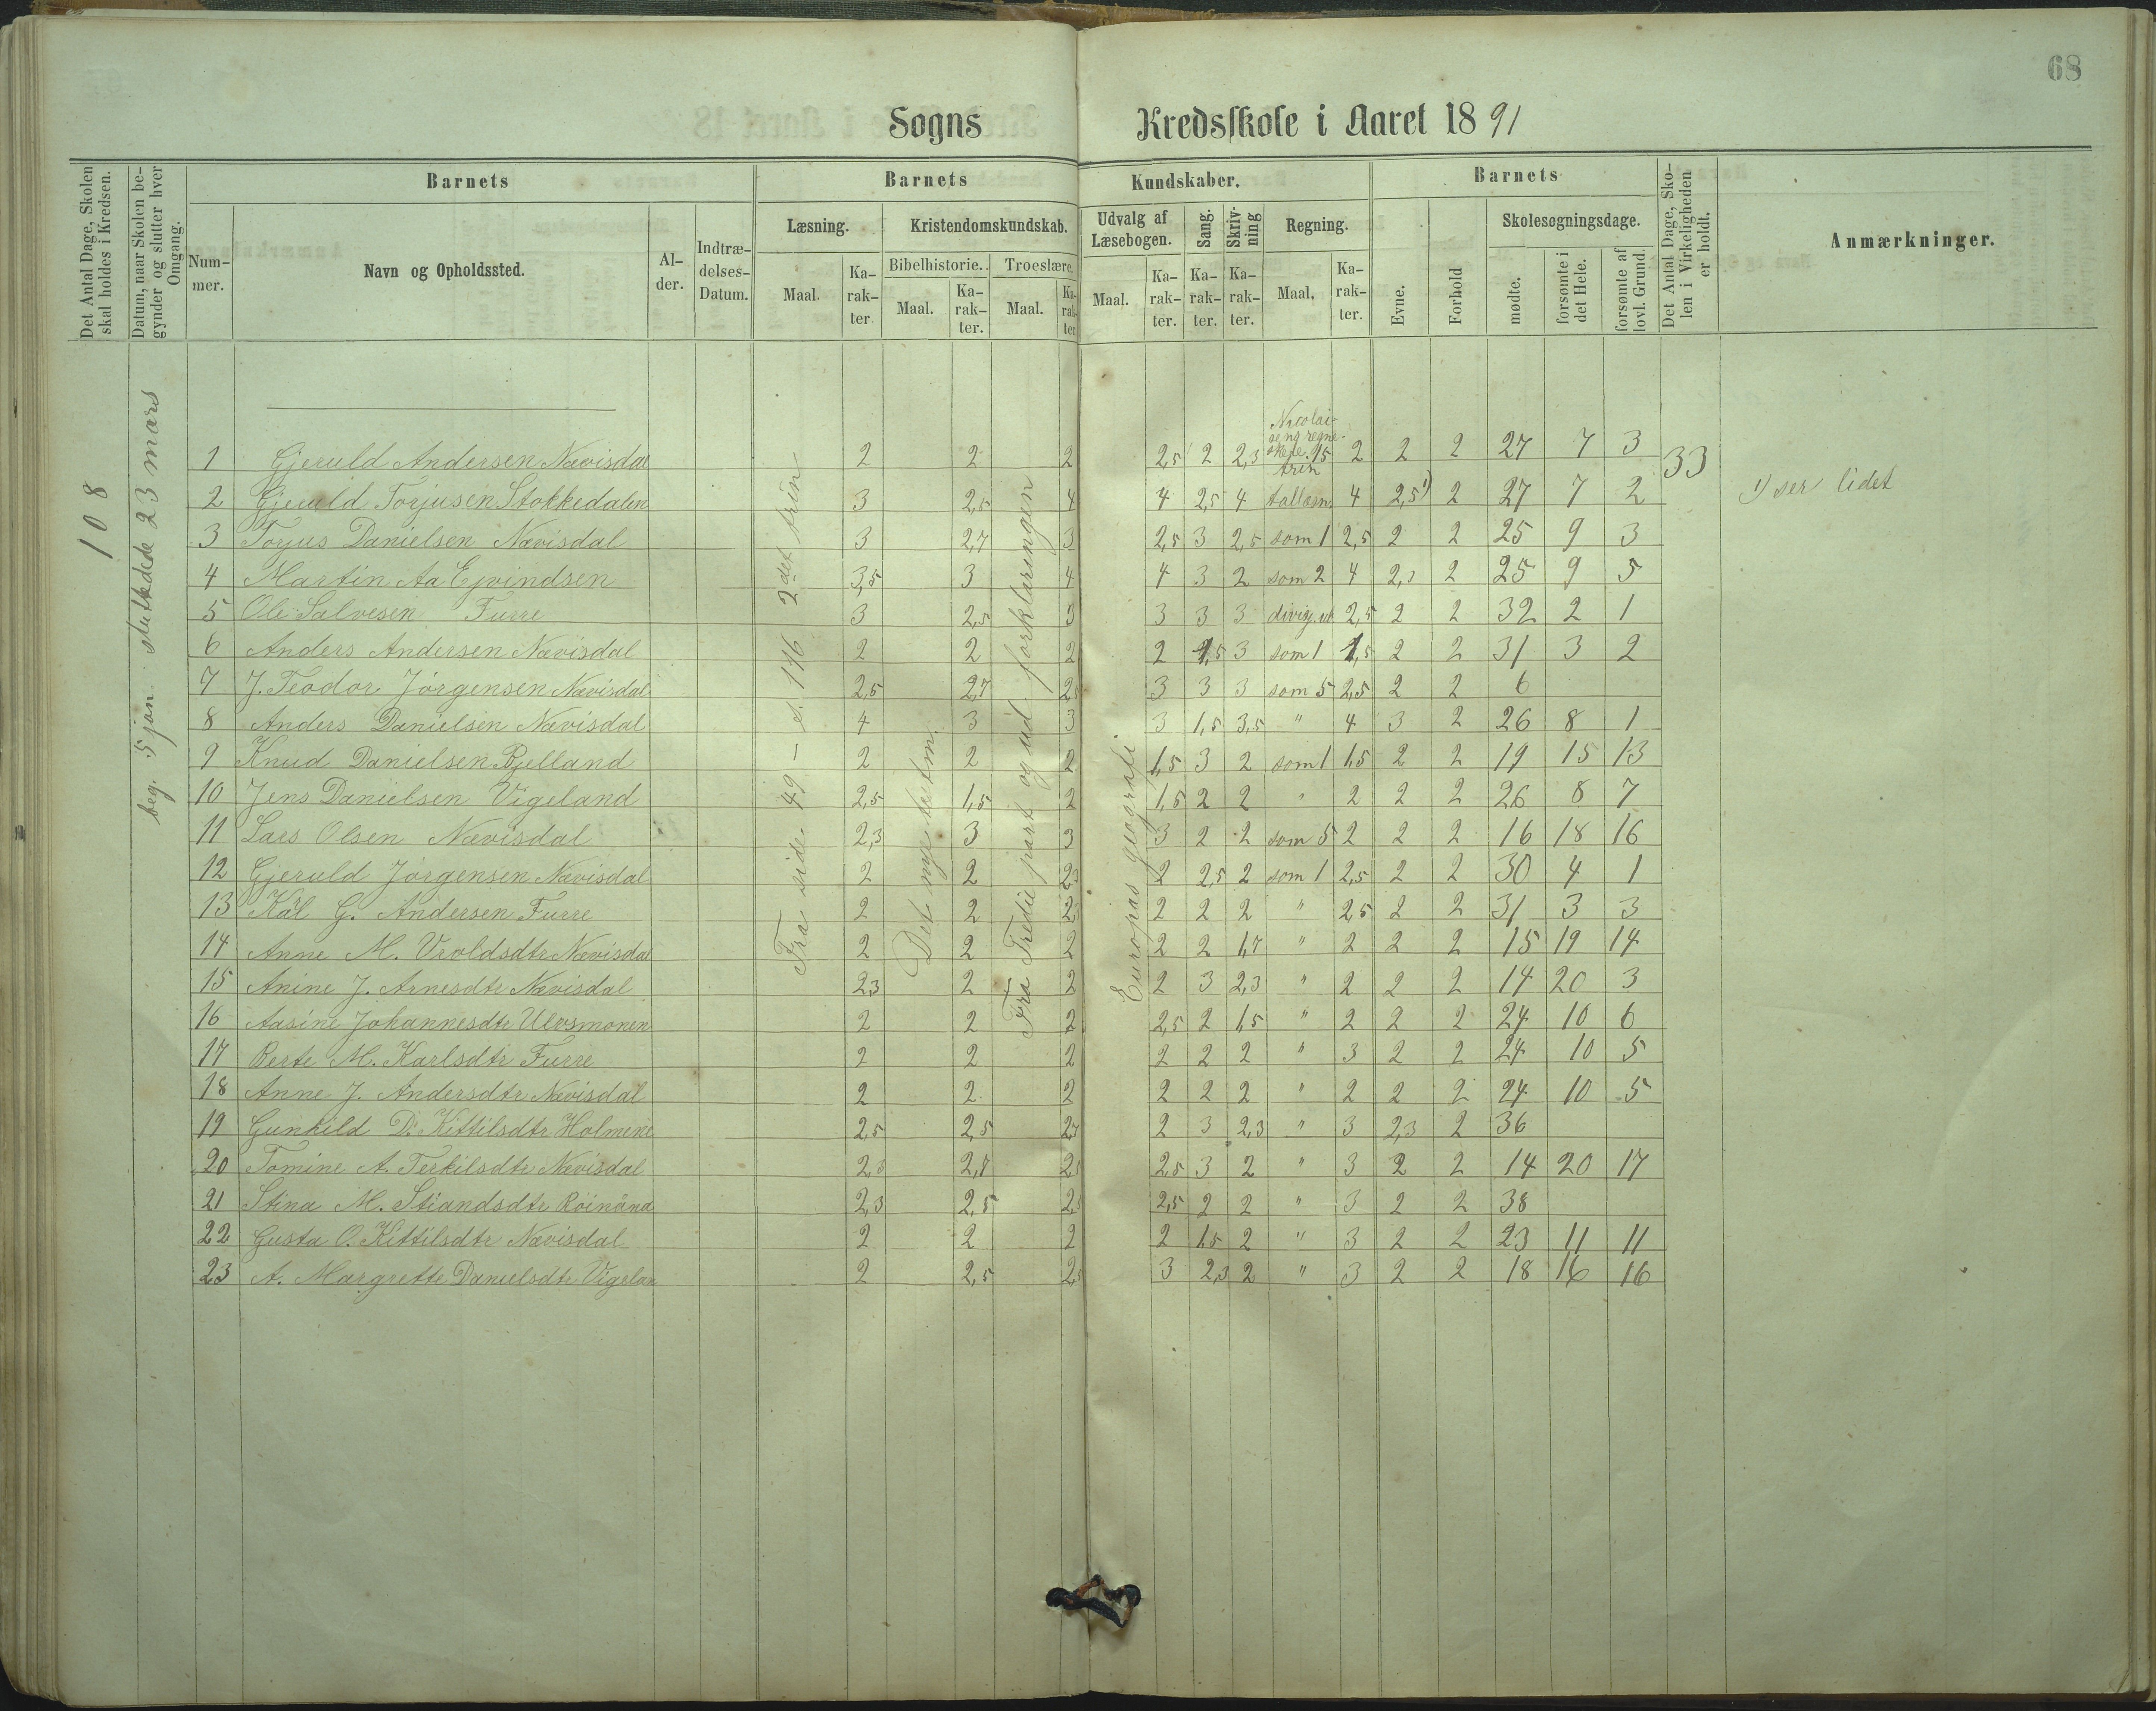 68
Sogns Kredsskole i Aaret 1891
Det Antal Dage, Skolen skal holdes i Kredsen.
Datum, naar Skolen begynder og slutter hver Omgang.
Barnets
Barnets Kundskaber.
Barnets
Det Antal Dage, Skolen i Virkeligheden er holdt.
Anmærkninger.
Nummer.
Navn og Opholdssted.
Alder.
Indtrædelses-Datum.
Læsning.
Kristendomskundskab.
Udvalg af Læsebogen.
Sang.
Skrivning
Regning.
Evne.
Forhold
Skolesøgningsdage.
Bibelhistorie.
Troeslære.
mødte.
forsømte i det Hele.
forsømte af lovl. Grund.
Maal. Karakter. Maal. Karakter. Maal. Karakter. Maal. Karakter. Karakter. Karakter. Maal. Karakter.
108
beg. 5 jan. sluttede 23 mars
Fra side 49 – s. 116 2det trin
Det nye testm.
Fra Tredie part og ud forklaringen
Europas geografi
33
1) ser lidet
1 Gjeruld Andersen Nævisdal 2 2 2 2,5 2 2,3 2 2 2 27 7 3
2 Gjeruld Torjusen Stokkedalen 3 2,5 4 4 2,5 4 4 2,5 1) 2 27 7 2
3 Torjus Danielsen Nævisdal 3 2,7 3 2,5 3 2,5 som 1 2,5 2 2 25 9 3
4 Martin Aa Ejvindsen 3,5 3 4 4 3 2 som 2 4 2 25 9 5
5 Ole Salvesen Furre 3 2,5 3 3 3 3 2,5 2 2 32 2 1
6 Anders Andersen Nævisdal 2 2 2 2 1,5 3 som 1 1,5 2 2 31 3 2
7 J. Teodor Jörgensen Nævisdal 2,5 2,7 2,5 3 3 3 som 5 2,5 2 2 6
8 Anders Danielsen Nævisdal 4 3 3 3 1,5 3,5 " 4 3 2 26 8 1
9 Knud Danielsen Bjelland 2 2 2 1,5 3 2 som 1 1,5 2 2 19 15 13
10 Jens Danielsen Vigeland 2,5 1,5 2 1,5 2 2 " 2 2 2 26 8 7
11 Lars Olsen Nævisdal 2,3 3 3 3 2 2 som 5 2 2 2 16 18 16
12 Gjeruld Jörgensen Nævisdal 2 2 2,3 2 2,5 2 som 1 2,5 2 2 30 4 1
13 Kål G. Andersen Furre 2 2 2 2 2 " 2,5 2 2 31 3 3
14 Anne M. Vroldsdtr Nævisdal 2 2 2 2 2 1,7 " 2 2 2 15 19 14
15 Anine J. Arnesdtr Nævisdal 2,3 2 2 2 3 2,3 " 2 2 2 14 20 3
16 Aasine Johannesdtr Ulvsmonen 2 2 2 2,5 2 1,5 " 2 2 2 24 10 6
17 Berte M. Karlsdtr Furre 2 2 2 2 2 2 " 3 2 2 24 10 5
18 Anne J. Andersdtr Nævisdal 2 2 2 2 2 2 " 2 2 2 24 10 5
19 Gunhild D. Kittilsdtr Holmene 2,5 2,5 2,7 2 3 2,3 " 3 2,3 2 36
20 Tomine A. Terkilsdtr Nævisdal 2,7 2,5 2,5 3 2 " 3 2 2 14 20 17
21 Stina M. Stiandsdtr Röinåna 2,3 2,5 2,5 2,5 2 2 " 3 2 2 38
22 Gusta O. Kittilsdtr Nævisdal 2 2 2 2 1,5 2 " 3 2 2 23 11 11
23 A. Margrette Danielsdtr Vigelan 2 2,5 2,5 3 2,3 2 " 3 2 2 18 16 16